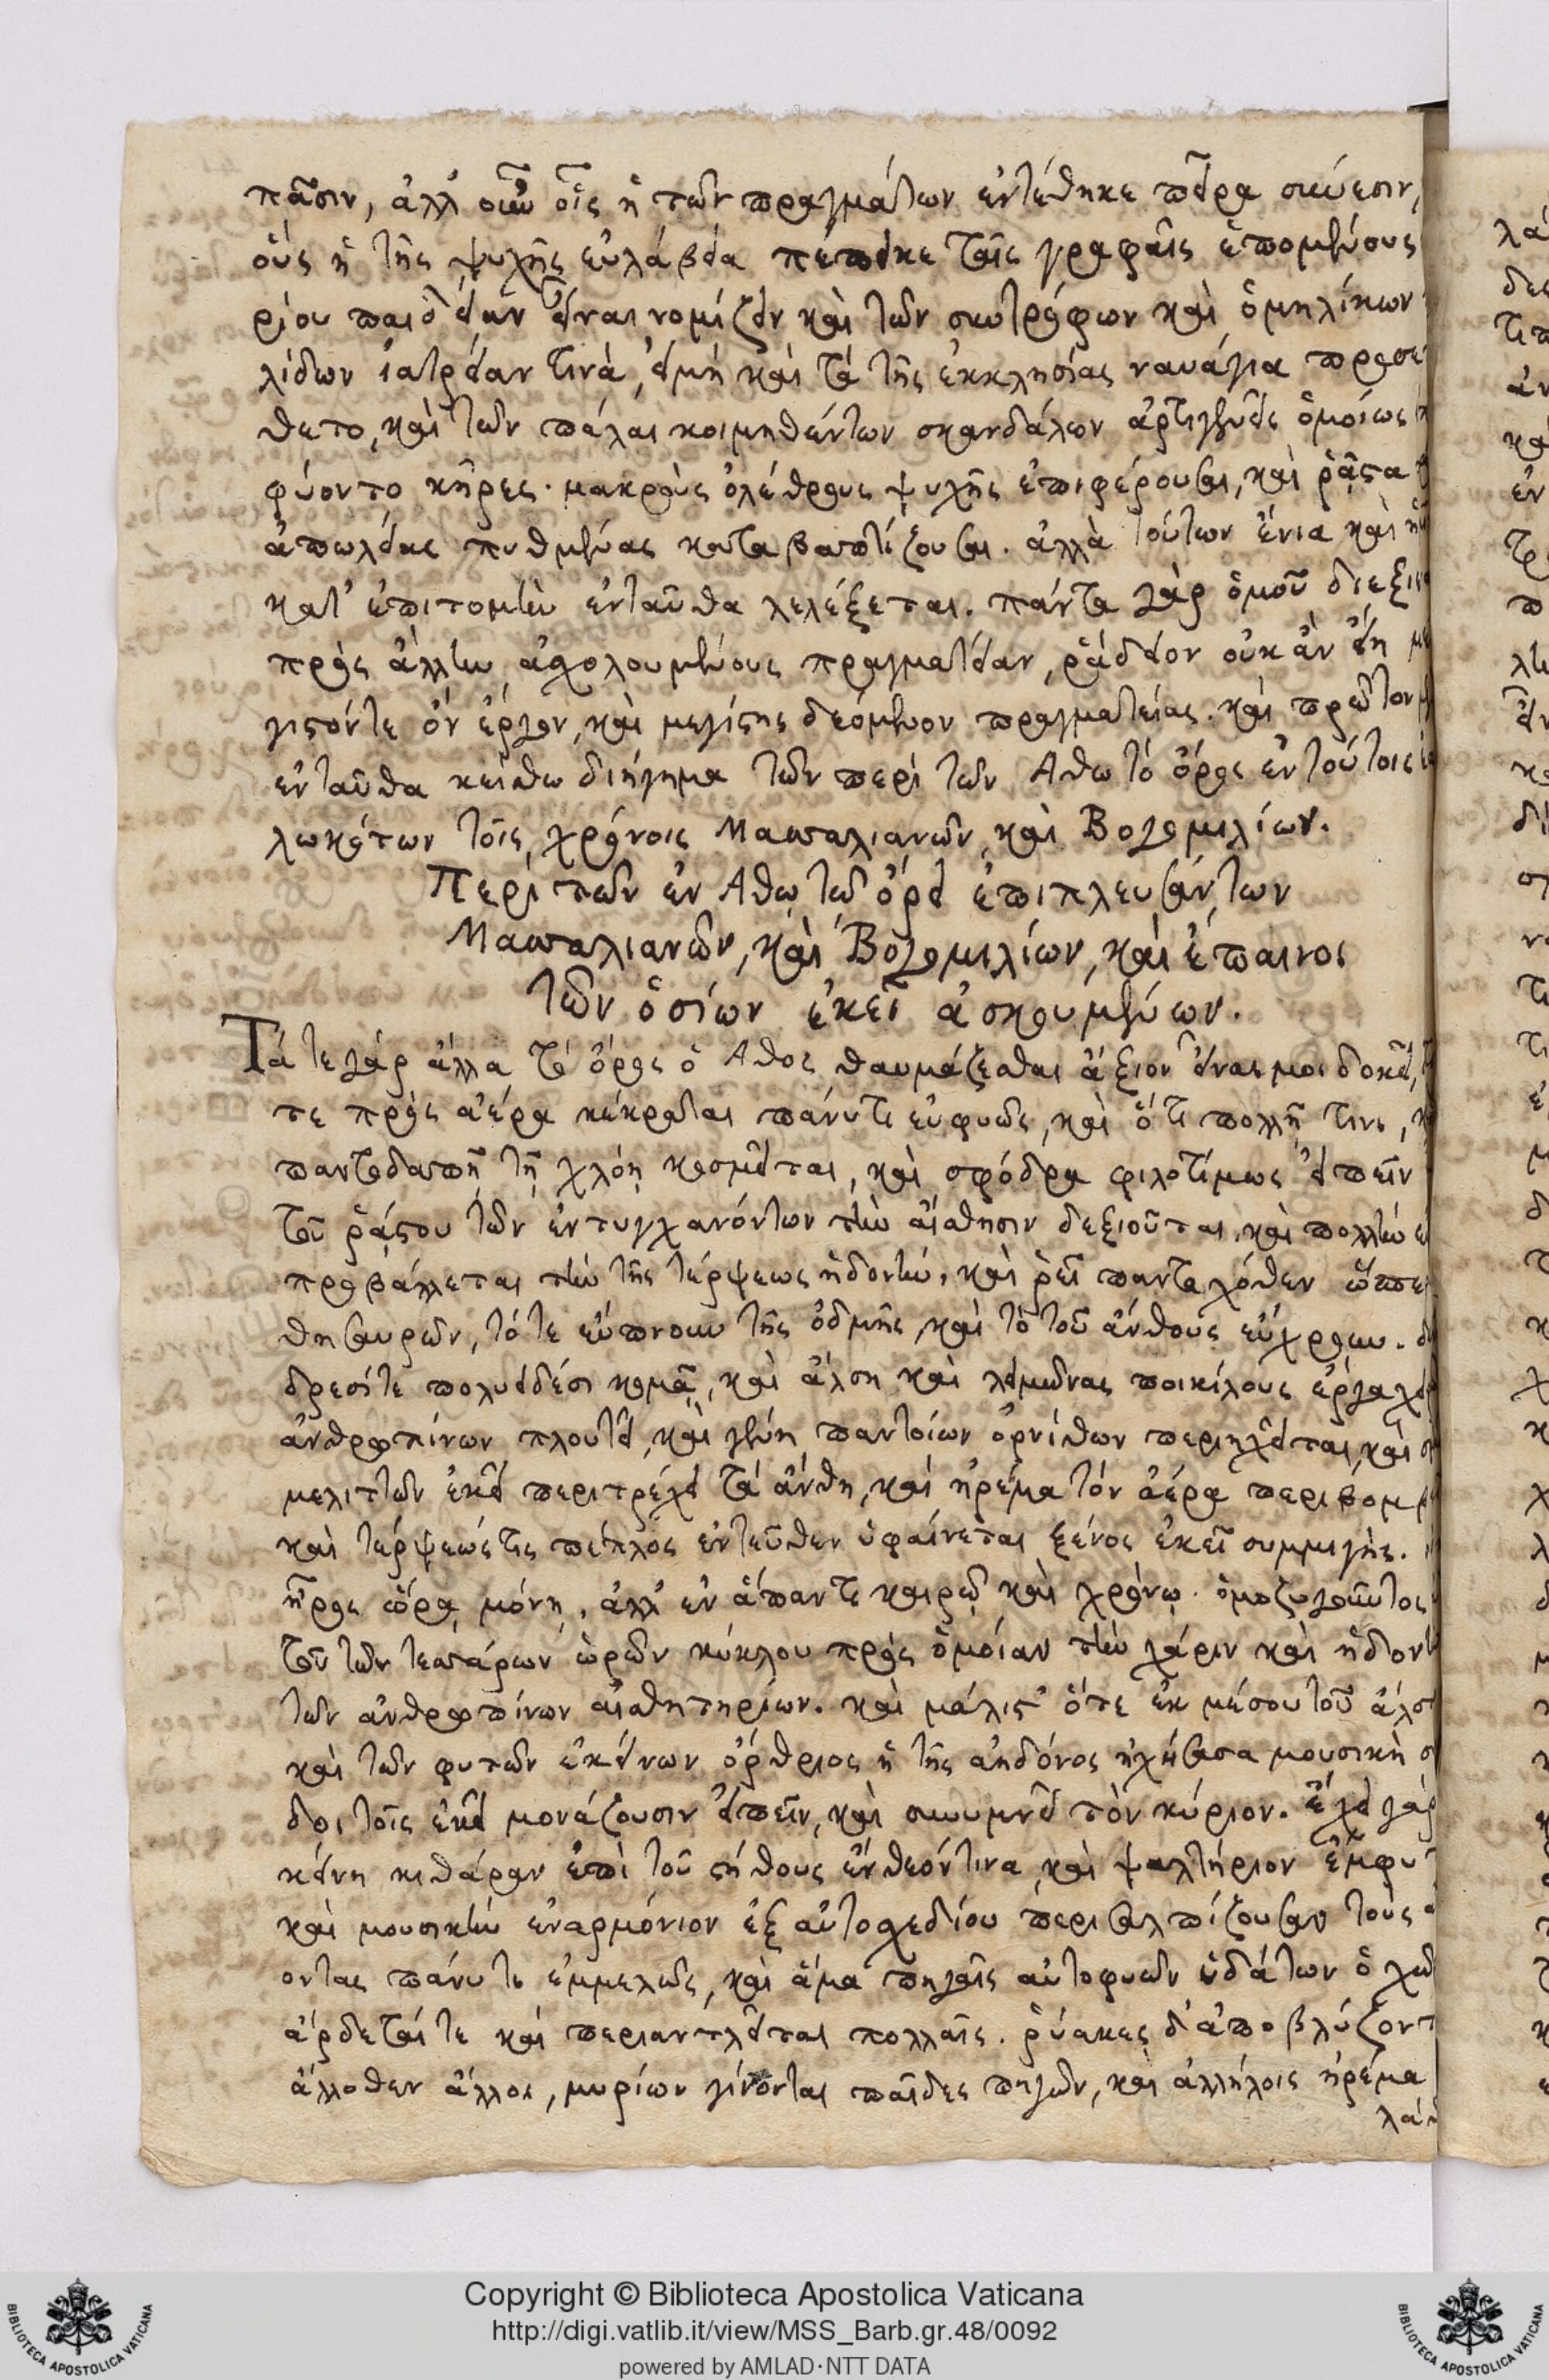 πᾶσιν, ἀλλ' οὖν οἷς ἡ τῶν πραγμάτων ἐντέθηκε πεῖρα σύνεσιν,
οὓς ἡ τῆς ψυχῆς εὐλάβεια πέπεικε ταῖς γραφαῖς ἑπομένους
ρίου παιδείαν εἶναι νομίζειν καὶ τῶν σκυτράφων καὶ ὁμηλίκων
λίδων ἰατρείαν τινὰ, εἰμὴ καὶ τὰ τῆς ἐκκλησίας ναυάγια προσε
θετο, καὶ τῶν πάλαι κοιμηθέντων σκανδάλων ἀρτιγενεῖς ὁμοίως
φύοντο κῆρες· μακροὺς ὀλέθρους ψυχῆς ἐπιφέρουσαι, καὶ ῥᾷστα
ἀπωλείας πυθμένας καταβαπτίζουσαι. ἀλλὰ τούτων ἔνια καὶ
κατ' ἐπιτομὴν ἐνταῦθα λελέξεται. πάντα γὰρ ὁμοῦ διεξι
πρὸς ἄλλην ἀσχολουμένους πραγματείαν, ῥάδιον οὐκ ἂν εἴη
γιστόντε ὂν ἔργον, καὶ μεγίστης δεόμενον πραγματείας. καὶ πρῶτον
ἐνταῦθα κείσθω διήγημα τῶν περὶ τῶν Ἄθω τὸ ὄρος ἐν τούτοις
λωκότων τοῖς χρόνοις Μασσαλιανῶν, καὶ Βογομιλίων.
Περὶ τῶν ἐν Ἄθῳ τῷ ὄρει ἐπιπλευσάντων
Μασσαλιανῶν, καὶ Βογομιλίων, καὶ ἔπαινοι
τῶν ὁσίων ἐκεῖ ἀσκουμένων.
Τά τε γὰρ ἄλλα τὸ ὄρος ὁ Ἄθος θαυμάζεσθαι ἄξιον εἶναι μοι δοκεῖ,
τε πρὸς ἀέρα κέκραται πάνυτι εὐφυῶς, καὶ ὅτι πολλῇ τινι,
παντοδαπῇ τῇ χλόῃ κοσμεῖται, καὶ σφόδρα φιλοτίμως εἰπεῖν
τοῦ ῥᾴστου τῶν ἐντυγχανόντων τὴν αἴσθησιν δεξιοῦται, καὶ πολλὴν
προβάλλεται τὴν τῆς τέρψεως ἡδονήν, καὶ ῥεῖ πανταχόθεν ὥσπε
θησαυρῶν, τό τε εὔπνουν τῆς ὀδμῆς, καὶ τὸ τοῦ ἄνθους εὔχρουν.
δρεσίτε πολυειδέσι κομᾷ, καὶ ἄλση καὶ λειμῶνας ποικίλους ἐργαλεί
ἀνθρωπίνων πλουτεῖ, καὶ γένη παντοίων ὀρνίθων περιηχεῖται, καὶ
μελιττῶν ἐκεῖ περιτρέχει τὰ ἄνθη, καὶ ἠρέμα τὸν ἀέρα περιβομ
καὶ τέρψεώς τις πέπλος ἐντεῦθεν ὑφαίνεται ξένος ἐκεῖ συμμιγής.
ἦρος ὥρᾳ μόνῃ, ἀλλ' ἐν ἅπαντι καιρῷ καὶ χρόνῳ· ὁμοζυγοῦντος
τοῦ τῶν τεσσάρων ὡρῶν κύκλου πρὸς ὁμοίαν τὴν χάριν καὶ ἡδον
τῶν ἀνθρωπίνων αἰσθητηρίων. καὶ μάλισθ' ὅτε ἐκ μέσου τοῦ ἄλσ
καὶ τῶν φυτῶν ἐκείνων ὄρθριος ἡ τῆς ἀηδόνος ἠχήσασα μουσικὴ
δοι τοῖς ἐκεῖ μονάζουσιν εἰπεῖν, καὶ συνυμνεῖ τὸν κύριον. ἔχει γὰρ
κείνη κιθάραν ἐπὶ τοῦ στήθους ἔνθεόν τινα, καὶ ψαλτήριον ἔμφυ
καὶ μουσικὴν ἐναρμόνιον ἐξ αὐτοσχεδίου περισαλπίζουσαν τοὺς
οντας πάνυ τι ἐμμελῶς, καὶ ἅμα πηγαῖς αὐτοφυῶν ὑδάτων ὁ χῶ
ἄρδεταί τε καὶ περιαντλεῖται πολλαῖς. ῥύακες δ' ἀποβλύζοντ
ἄλλοθεν ἄλλοι, μυρίων γίνονται παῖδες πηγῶν, καὶ ἀλλήλοις ἠρέμα
Copyright © Biblioteca Apostolica Vaticana
http://digi.vatlib.it/view/MSS_Barb.gr.48/0092
powered by AMLAD·NTT DATA
BIBLIOTECA APOSTOLICA VATICANA
BIBLIOTECA APOSTOLICA VATICANA